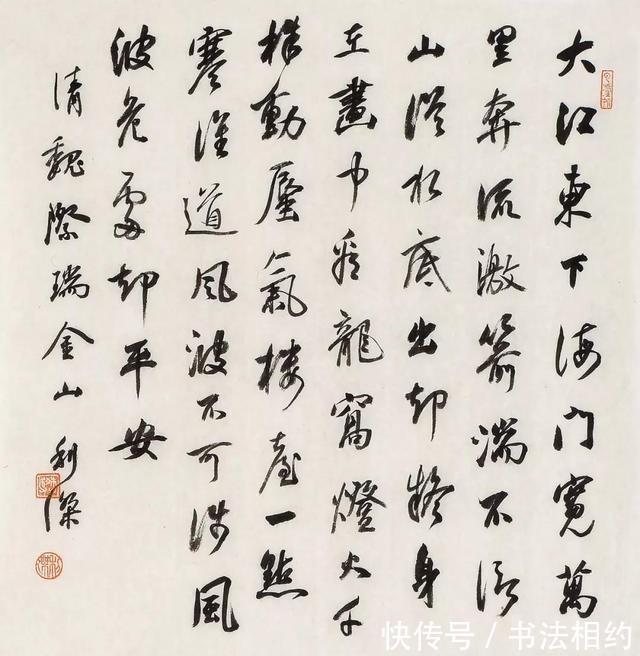 大江東下海門寬萬
里奔流激箭湍不信
山從水底出却疑身
在畫中看龍窩燈火千
檣動蜃氣樓臺一點
寒誰道風波不可涉風
波危處却平安
清魏際瑞金山 利傑
快传号 / 书法相约